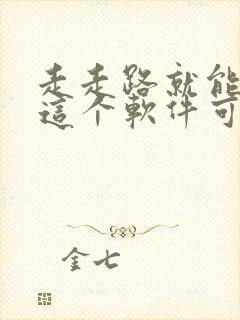 走走路就能
這个軟件可
金七